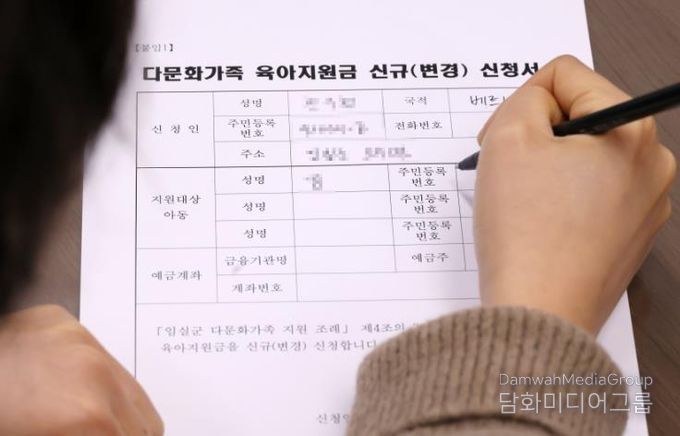 [붙임1]
다문화가족 육아지원금 신규(변경) 신청서
신 청 인
성명
국적
주민등록
번호
전화번호
주소
지원대상
아동
성명
주민등록
번호
성명
주민등록
번호
성명
주민등록
번호
예금계좌
금융기관명
예금주
계좌번호
「임실군 다문화가족 지원 조례」 제4조의
육아지원금을 신규(변경) 신청합니다
신청인
DamwahMediaGroup
담화미디어그룹